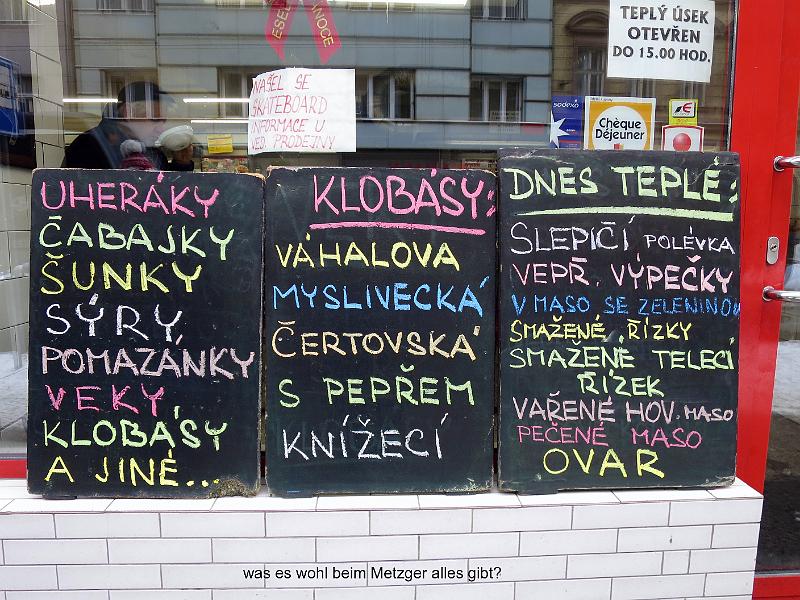 TEPLÝ ÚSEK
OTEVŘEN
DO 15.00 HOD.
NAŠEL SE
SKATEBOARD
INFORMACE U
VED. PRODEJNY
sodexo
Chèque
Déjeuner
UHERÁKY
ČABAJKY
ŠUNKY
SÝRY
POMAZÁNKY
VEKY
KLOBÁSY
A JINÉ...
KLOBÁSY:
VÁHALOVA
MYSLIVECKÁ
ČERTOVSKÁ
S PEPŘEM
KNÍŽECÍ
DNES TEPLÉ:
SLEPIČÍ POLÉVKA
VEPŘ. VÝPEČKY
V MASO SE ZELENINOU
SMAŽENÉ ŘÍZKY
SMAŽENÉ TELECÍ
ŘÍZEK
VAŘENÉ HOV. MASO
PEČENÉ MASO
OVAR
was es wohl beim Metzger alles gibt?